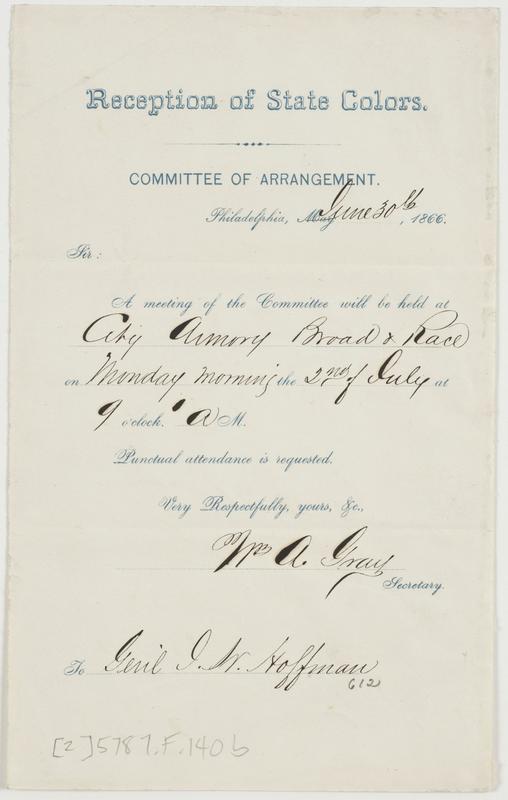 Reception of State Colors.
COMMITTEE OF ARRANGEMENT.
Philadelphia, May June 30th, 1866.
Sir:
A meeting of the Committee will be held at
City Armory Broad & Race
on Monday morning the 2nd of July at
9 o'clock. A M.
Punctual attendance is requested.
Very Respectfully, yours, &c.,
Wm A. Gray
Secretary.
To Genl J. W. Hoffman
612
[2]5787.F.140b